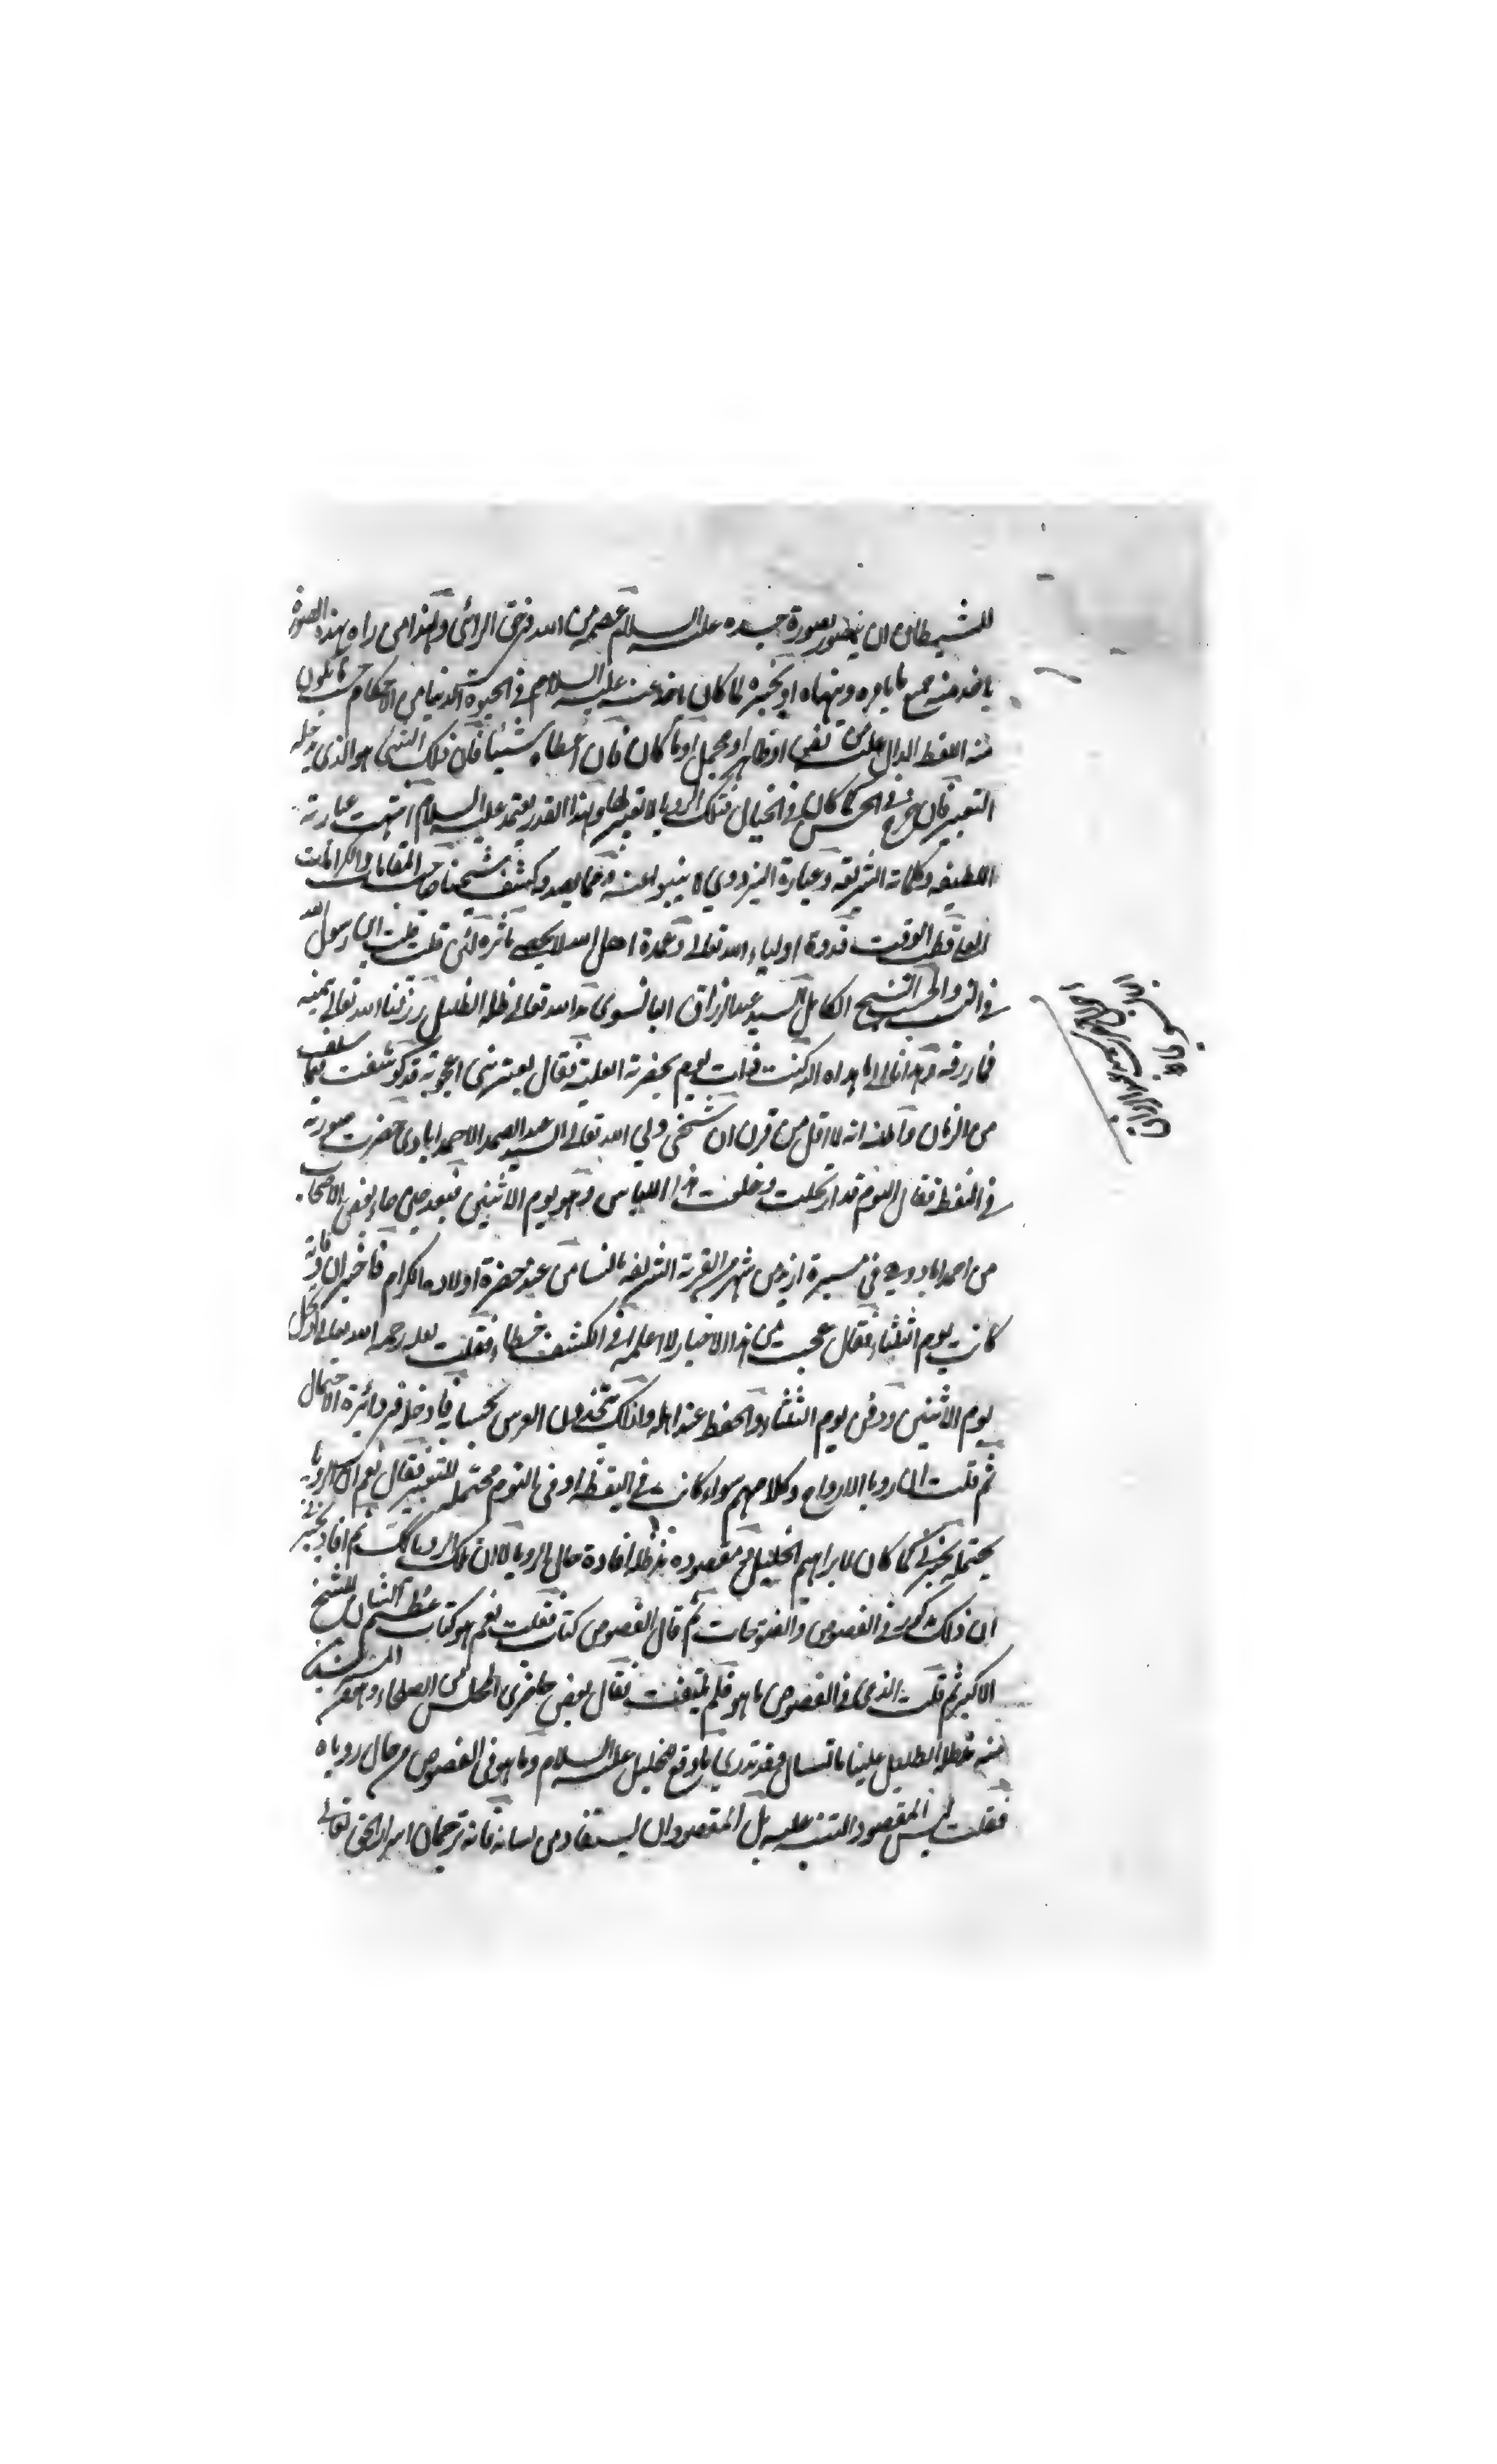 للشيطان ان يتصور بصورة جسده عليه السلام عصمة من الله في حق الرائى ولهذا من راه بهذه الصورة
ياخذ منه جميع ما يامره وينهاه او يخبره كما كان ياخذ عنه عليه السلام في الحيوة الدنيا من الاحكام على حسب ما يكون
منه اللفظ الدال عليه من نص او ظاهر او مجمل او ما كان فان اعطاه شيئا فان ذلك الشئ هو الذي يدخله
التعبير فان خرج في الحس كما كان في الخيال فتلك الرويا لا تعبير لها وبهذا القدر يعتمد عليه السلام انتهت عبارته
اللطيفه وكلماته الشريفه وعبارة البزدوي لا ينبو عنه ومما يصدقه كشف شيخنا صاحب المقامات والكرامات
قطب الوقت قدوة اولياء الله تعالى وعمدة اهل الله لا يحصى مآثره لئن قلت قلت ابن رسول الله
في النسب والحسب الشيخ الكامل السيد عبد الرزاق البانسوى مد الله تعالى ظله الظليل رزقنا الله تعالى بمنه
مما رزقه وهدانا الى ما هداه انه كنت ذات يوم بحضرته العلية فقال يعتريني اعجوبة قد كوشفت فيما سلف
من الزمان انه لا اقل من قرن ان شخص ولي الله تعالى السيد عبد الصمد الاحمدابادى حضرت صورته
في اليقظة فقال اليوم قد ارتحلت وخلعت هذا اللباس وهو يوم الاثنين فبعد حين جاء بعض الاصحاب
من احمداباد وهي في مسيرة ازيد من شهر من القرية الشريفه بانسا من عند حضرة اولاده الكرام فاخبر ان وفاته
كانت يوم الثلثاء فقال عجبت من هذا الاخبار لا اعلم انا في الكشف خطاء فقلت لعله رحمه الله تعالى ارتحل
يوم الاثنين ودفن يوم الثلثاء والحفظ عند اهله وانك تتخذون العرس بحسابه فادخله في دائرة الاحتمال
ثم قلت ان رويا الارواح وكلامهم سواء كانت في اليقظة او في النوم محتمله للتعبير فقال نعم ان الرويا
يحتمله كما كان لابراهيم الخليل مقصوده مد ظله افادة حال الرويا لا ان تلك الرويا كذلك ثم افاد
ان ذلك مذكور في الفصوص والفتوحات ثم قال الفصوص كتاب فقلت نعم هو كتاب عظيم الشان للشيخ
الاكبر ثم قلت الذي في الفصوص ما هو فلم يلتفت فقال بعض حاضرى المجلس من الصلحاء
منه ظله الظليل علينا ما تسال وقد تدري ما وقع للخليل عليه السلام وما هو في الفصوص من حال روياه
فقلت ليس المقصود التنبيه عليه بل المقصود ان يستفاد من لسانه فانه ترجمان اسرار الحق تعالى